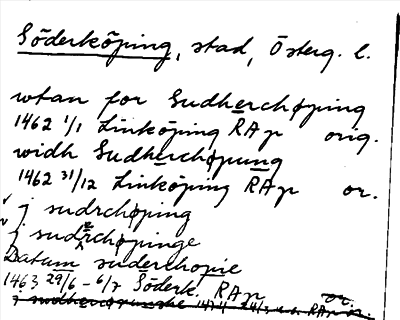 Söderköping, stad, Österg. l.
wtan for Sudherchøping
1462 1/1 Linköping RAp orig.
widh Sudherchøpung
1462 31/12 Linköping RAp or.
j sudrchøping
j sudrchøpinge
Datum suderchopie
1463 29/6 - 6/7 Söderk. RAp or.